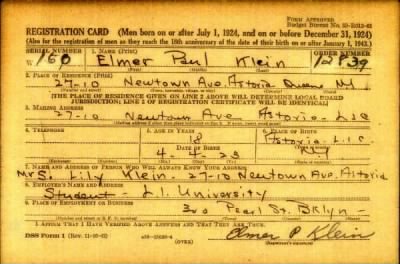 FORM APPROVED
REGISTRATION CARD (Men born on or after July 1, 1924, and on or before December 31, 1924)
(Also for the registration of men as they reach the 18th anniversary of the date of their birth on or after January 1, 1943.)
SERIAL NUMBER 1. NAME (Print) ORDER NUMBER
W 160 Elmer Paul Klein 12839
2. PLACE OF RESIDENCE (Print)
27-10 Newtown Ave Astoria Queens NY
[THE PLACE OF RESIDENCE GIVEN ON LINE 2 ABOVE WILL DETERMINE LOCAL BOARD
JURISDICTION; LINE 2 OF REGISTRATION CERTIFICATE WILL BE IDENTICAL]
3. MAILING ADDRESS
27-10 Newtown Ave Astoria-LIC
4. TELEPHONE 5. AGE IN YEARS 6. PLACE OF BIRTH
18 Astoria-LIC
DATE OF BIRTH
4-4-25 NY
7. NAME AND ADDRESS OF PERSON WHO WILL ALWAYS KNOW YOUR ADDRESS
Mrs. Lily Klein-27-10 Newtown Ave. Astoria
8. EMPLOYER'S NAME AND ADDRESS
Student- L.I. University
9. PLACE OF EMPLOYMENT OR BUSINESS
Pearl St. Bklyn
I AFFIRM THAT I HAVE VERIFIED ABOVE ANSWERS AND THAT THEY ARE TRUE.
DSS Form 1 (OVER) Elmer P Klein